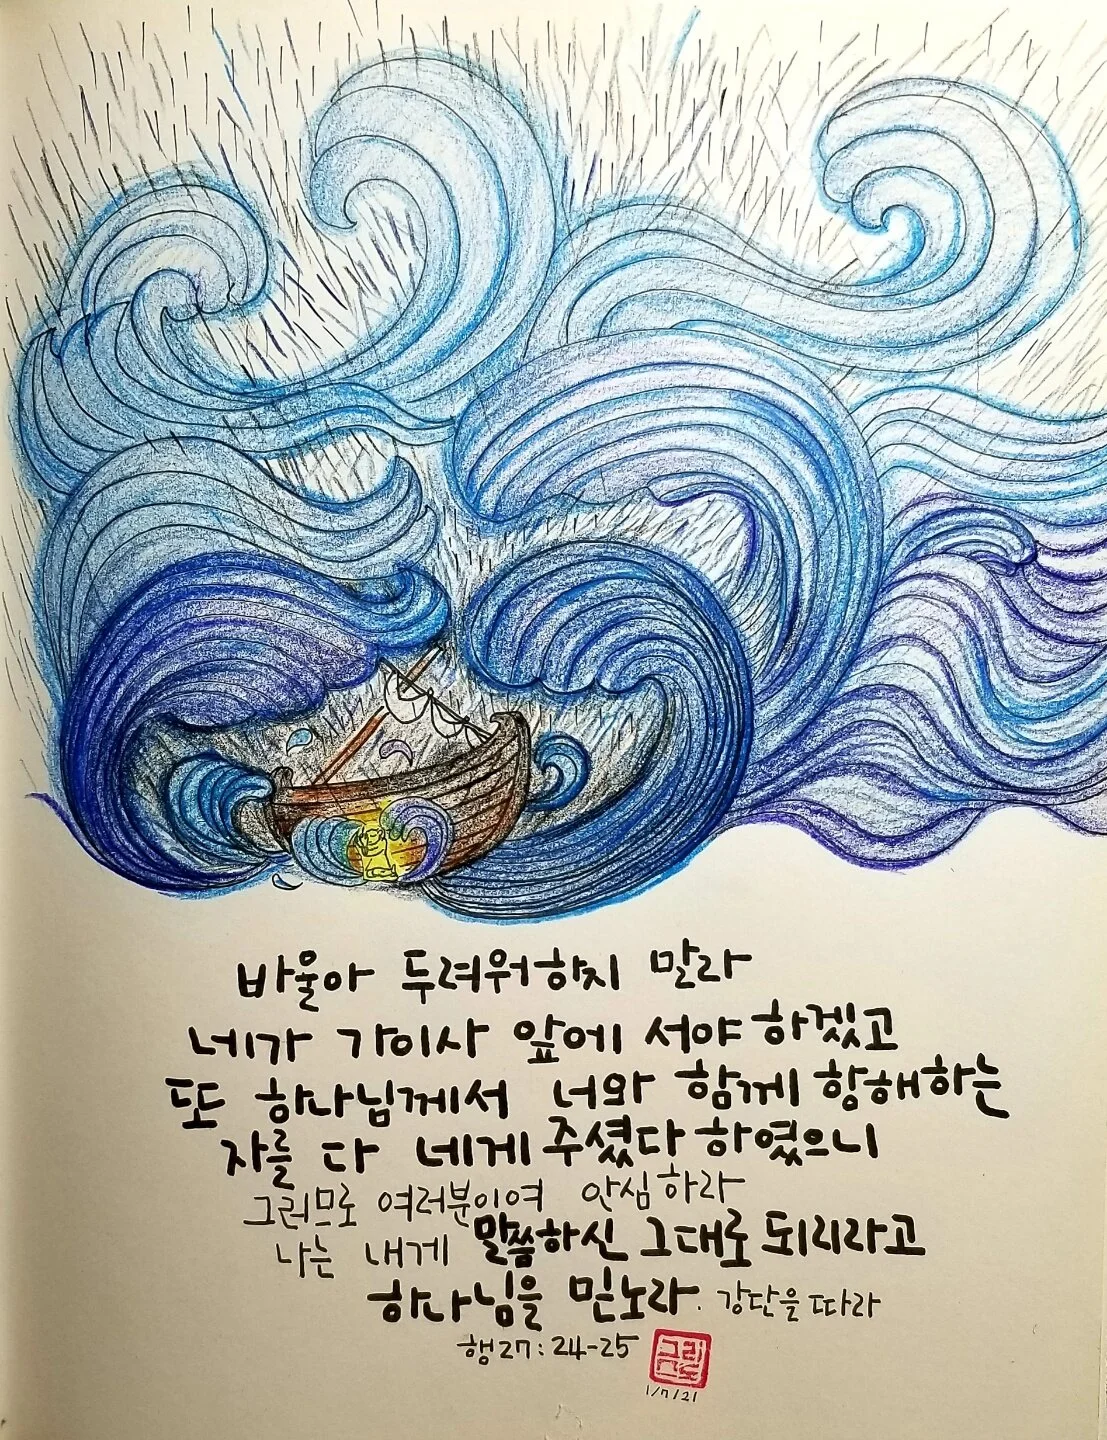 바울아 두려워하지 말라
네가 가이사 앞에 서야 하겠고
또 하나님께서 너와 함께 항해하는
자를 다 네게 주셨다 하였으니
그러므로 여러분이여 안심하라
나는 내게 말씀하신 그대로 되리라고
하나님을 믿노라. 강단을 따라
행27:24-25
1/7/21